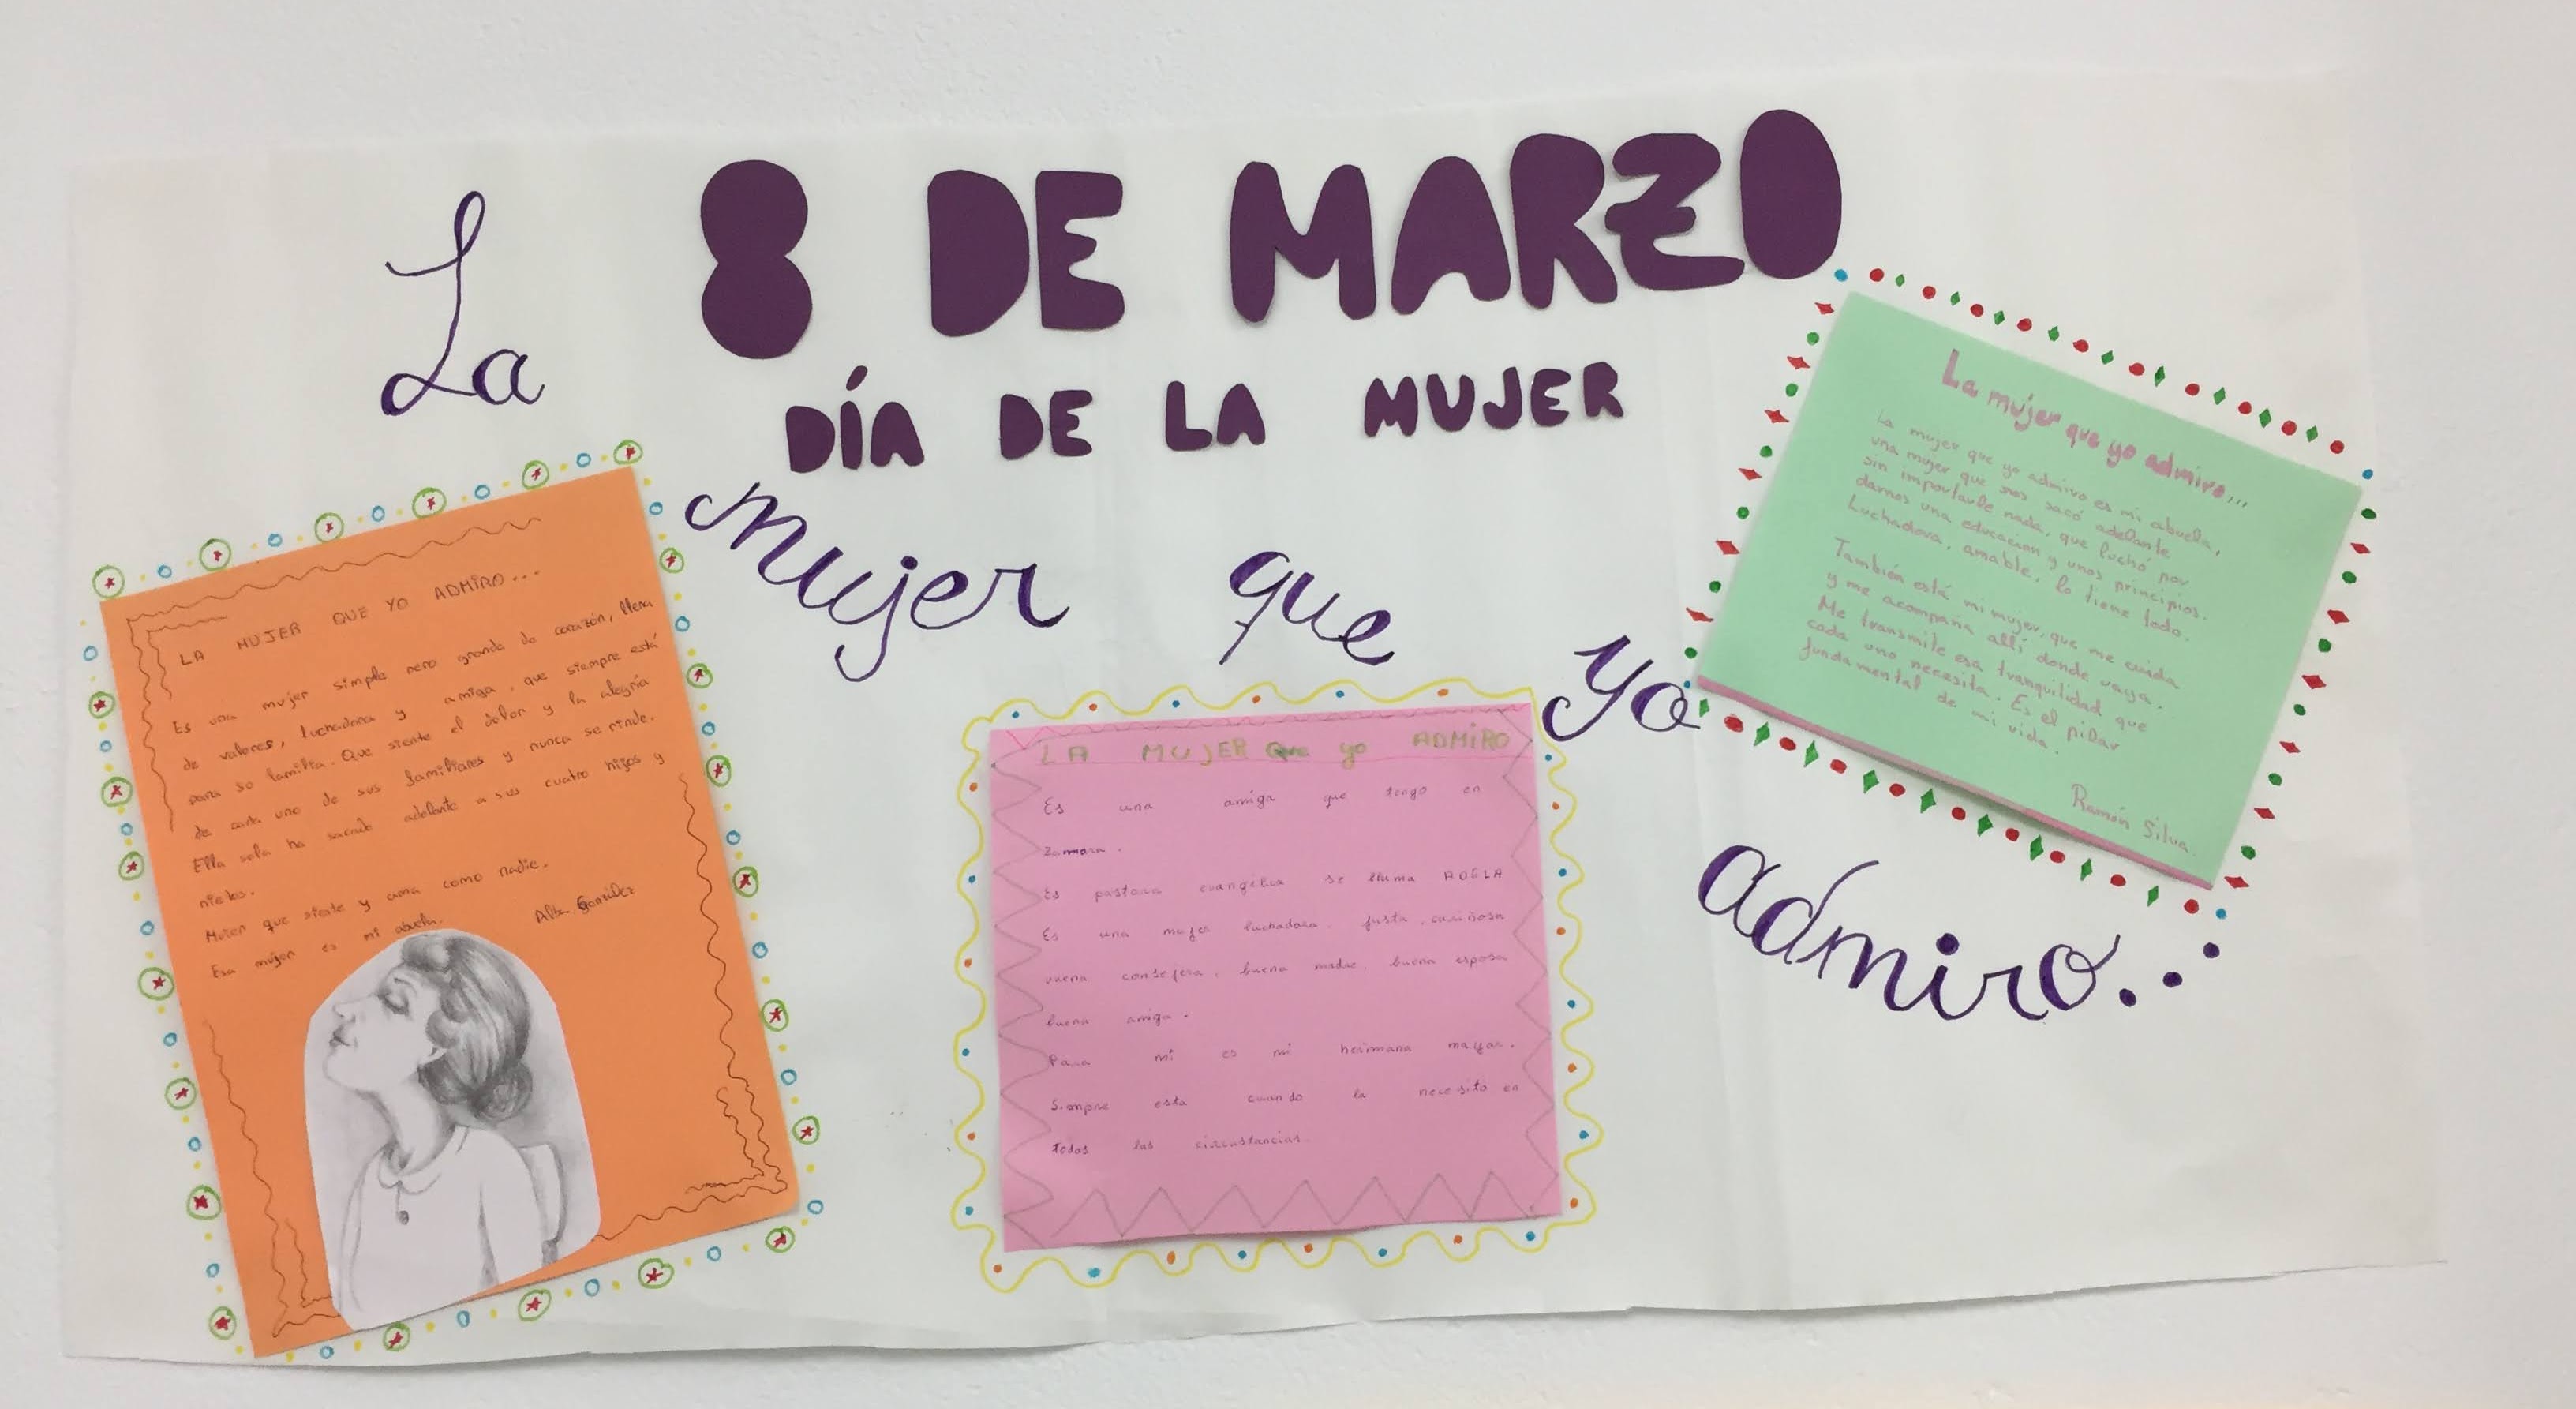 8 DE MARZO
DÍA DE LA MUJER
La
mujer
que
yo
admiro...
LA MUJER QUE YO ADMIRO...
Es una mujer simple pero grande de corazón, llena
de valores, luchadora y amiga, que siempre está
para su familia. Que siente el dolor y la alegría
de cada uno de sus familiares y nunca se rinde.
Ella sola ha sacado adelante a sus cuatro hijos y
nietos.
Mujer que siente y ama como nadie.
Esa mujer es mi abuela.
Alba González
LA MUJER Que yo ADMIRO
Es una amiga que tengo en
Zamora.
Es pastora evangelica se lluma ADELA
Es una mujer luchadora, justa, cariñosa
vuena consejera, buena madre, buena esposa
buena amiga.
Para mi es mi hermana mayor.
Siempre esta cuando la necesito en
todas las circustancias.
La mujer que yo admiro...
La mujer que yo admiro es mi abuela,
una mujer que nos sacó adelante
sin importarle nada, que luchó por
darnos una educación y unos principios.
Luchadora, amable, lo tiene todo.
También está mi mujer, que me cuida
y me acompaña allí donde vaya.
Me transmite esa tranquilidad que
cada uno necesita. Es el pilar
fundamental de mi vida.
Ramón Silva